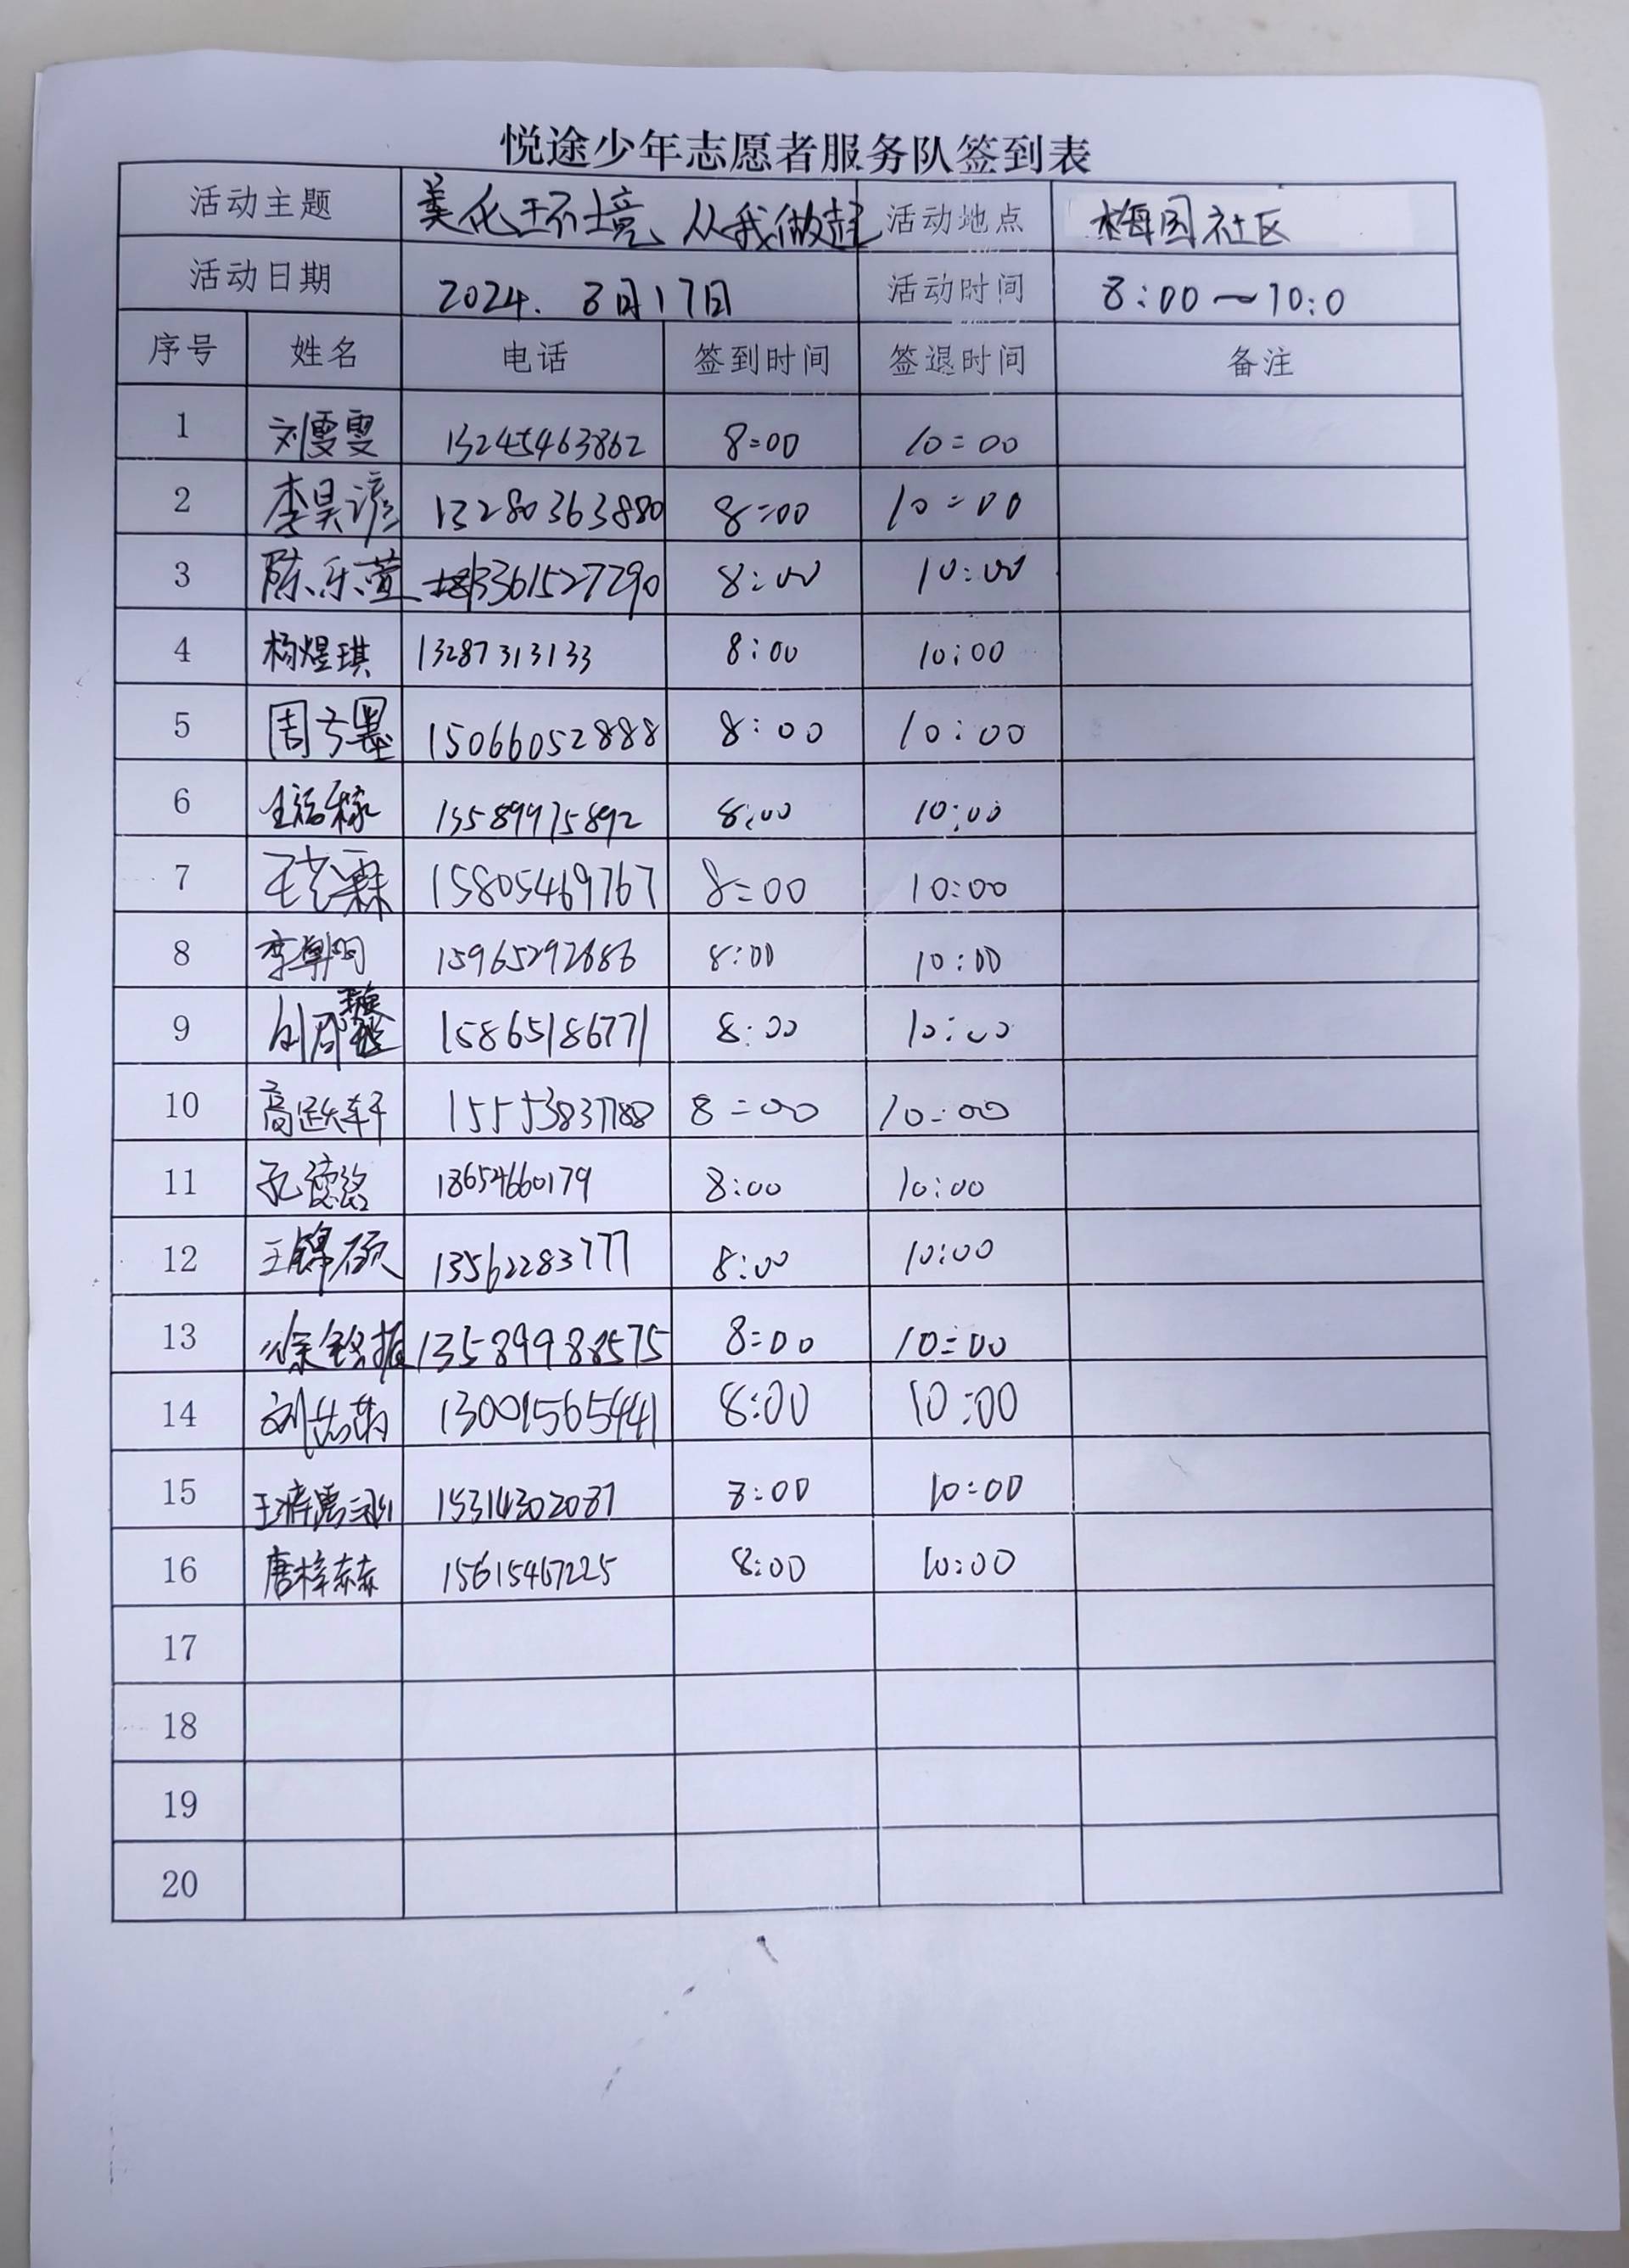 悦途少年志愿者服务队签到表
活动主题 美化环境 从我做起 活动地点 梅园社区
活动日期 2024. 8月17日 活动时间 8:00~10:0
序号 姓名 电话 签到时间 签退时间 备注
1 刘雯雯 13245463862 8:00 10:00
2 李昊谚 13280363880 8:00 10:00
3 陈乐萱 13361527290 8:00 10:00
4 杨煜琪 13287313133 8:00 10:00
5 周子墨 15066052888 8:00 10:00
6 13589975892 8:00 10:00
7 王艺霖 15805469767 8:00 10:00
8 李朝阳 15965292686 8:00 10:00
9 15865186771 8:00 10:00
10 高跃轩 15553837188 8:00 10:00
11 孔德铭 18654660179 8:00 10:00
12 王锦硕 13562283777 8:00 10:00
13 徐铭振 13589988575 8:00 10:00
14 13001565441 8:00 10:00
15 15314302087 8:00 10:00
16 唐梓赫 15615467225 8:00 10:00
17
18
19
20